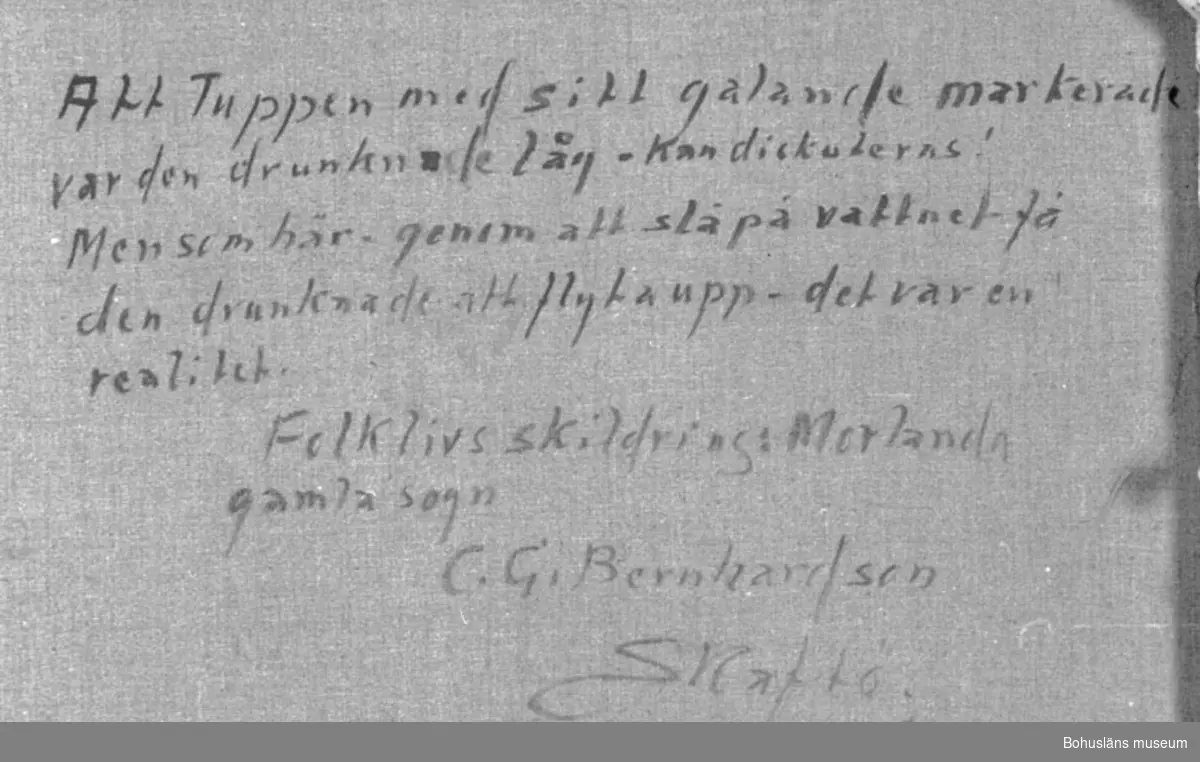 Att Tuppen med sitt galande markerade
var den drunknade låg - kan diskuterns!
Men som här - genom att slå på vattnet få
den drunknade att flyta upp - det var en
realitet.
Folklivsskildring: Morlanda
gamla sogn
C. G. Bernhardson
Skaftö.
Bohusläns museum